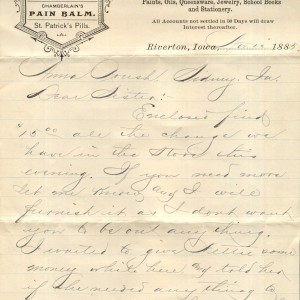 CHAMBERLAIN'S
PAIN BALM.
St. Patrick's Pills.
Paints, Oils, Queensware, Jewelry, School Books
and Stationery.
All Accounts not settled in 30 Days will draw
Interest thereafter.
Riverton, Iowa, 188
Sidney Ia.
Dear Sister:
Enclosed find
all the change we
have in the store this
evening. If you need more
let me know and I will
furnish it as I dont want
you to be out any thing.
I wanted to give some
money while here and told her
if she needed any thing to